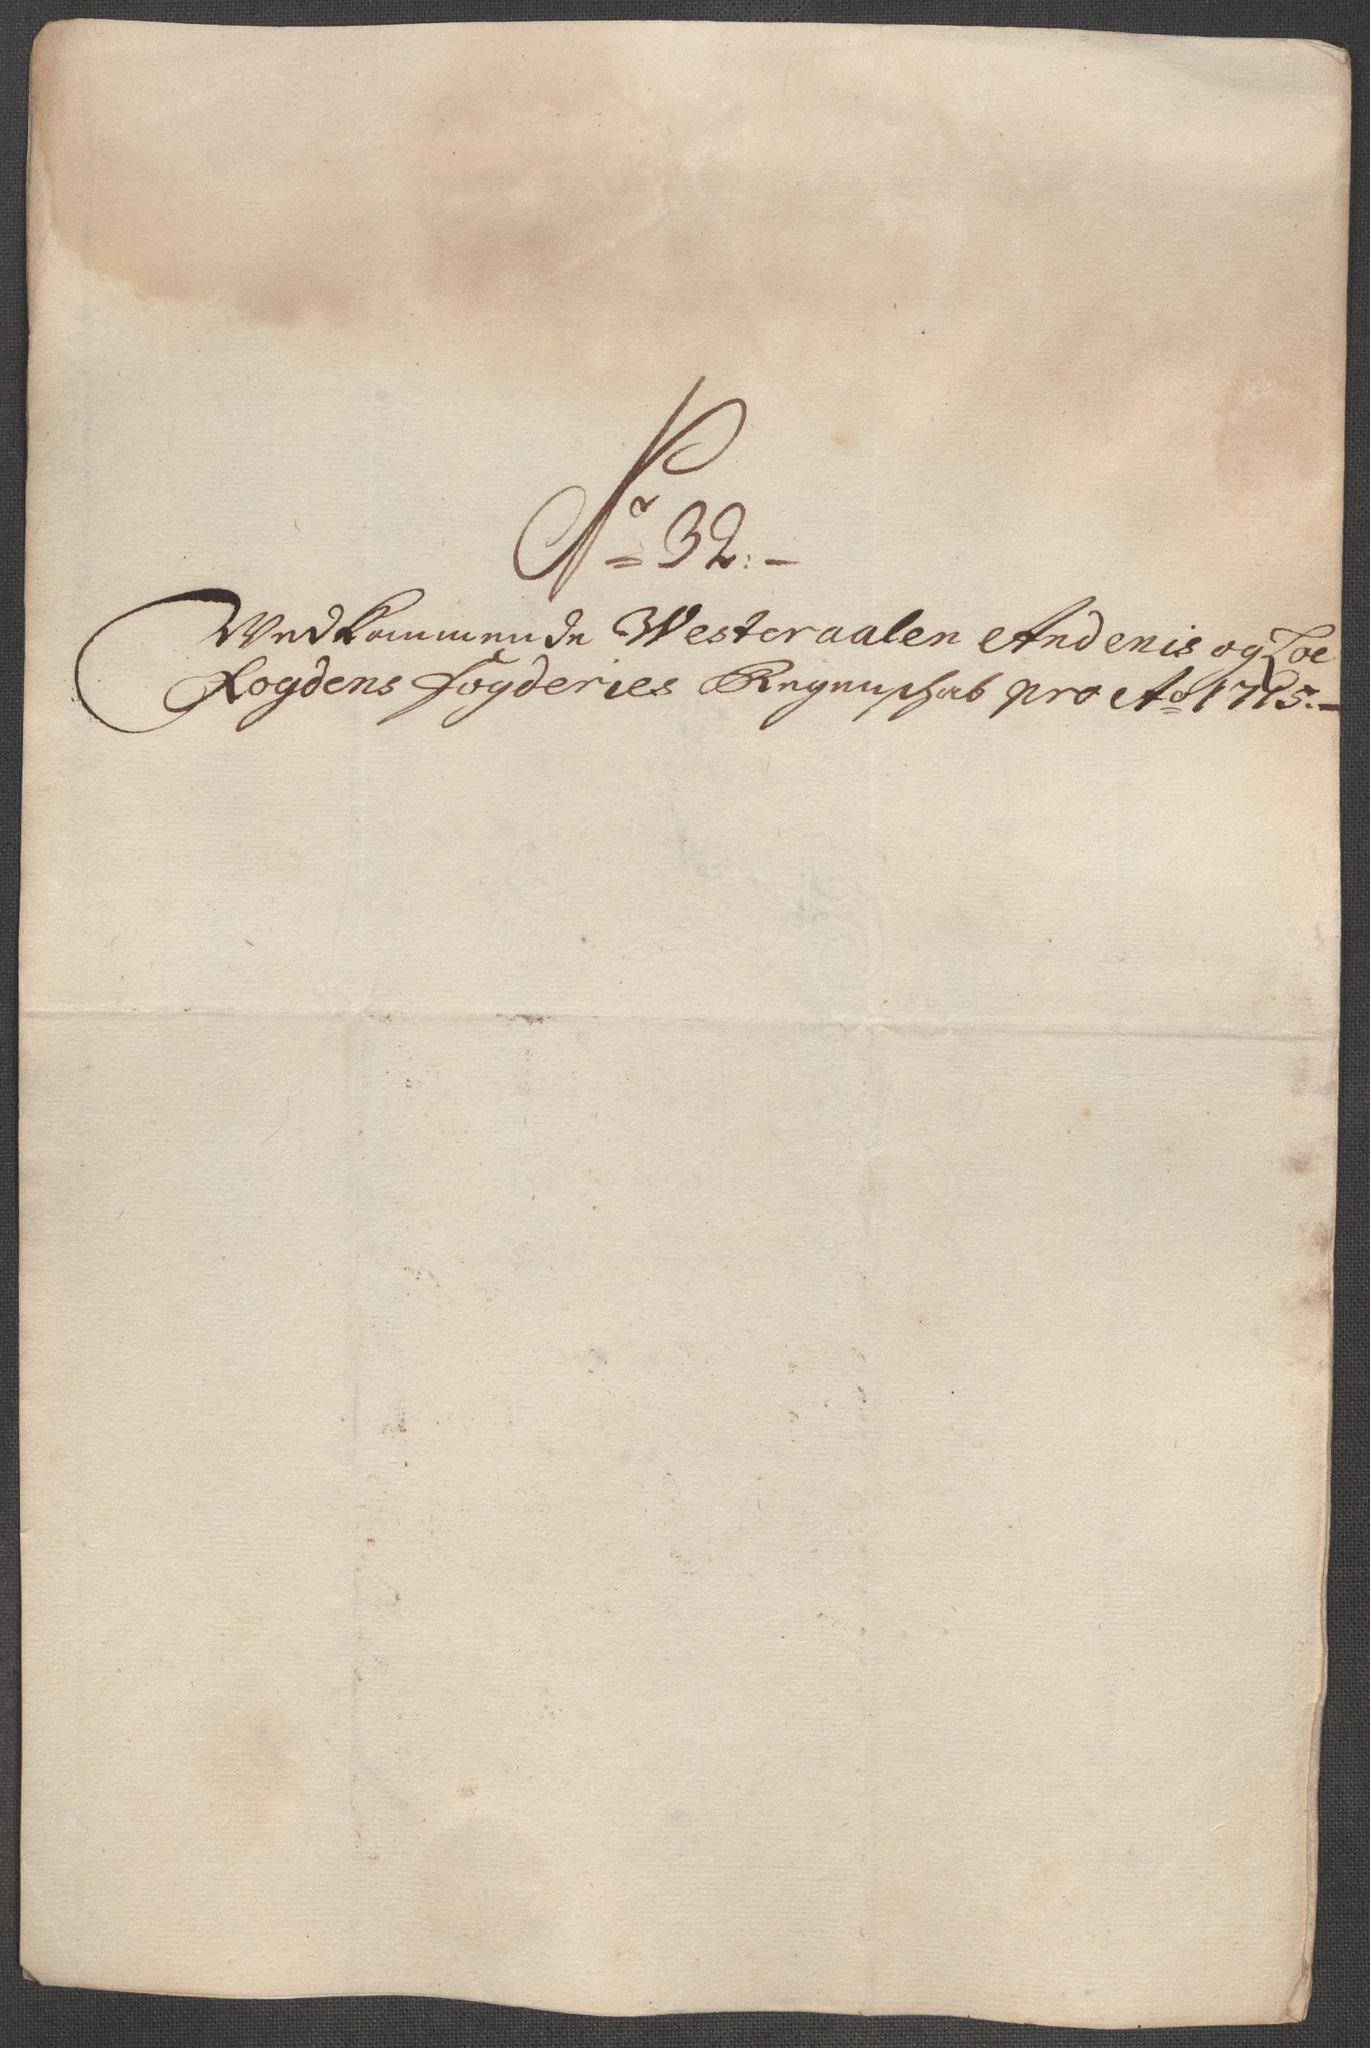 Nr 32:-
Vedkommende Westeraalen Andenis og Loe
Fogdens Fogderies Regenschab pro Ao 1715:-